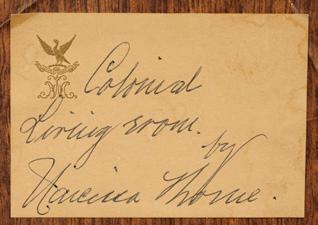 Colonial
Living room.
by
Narcissa Thorne.